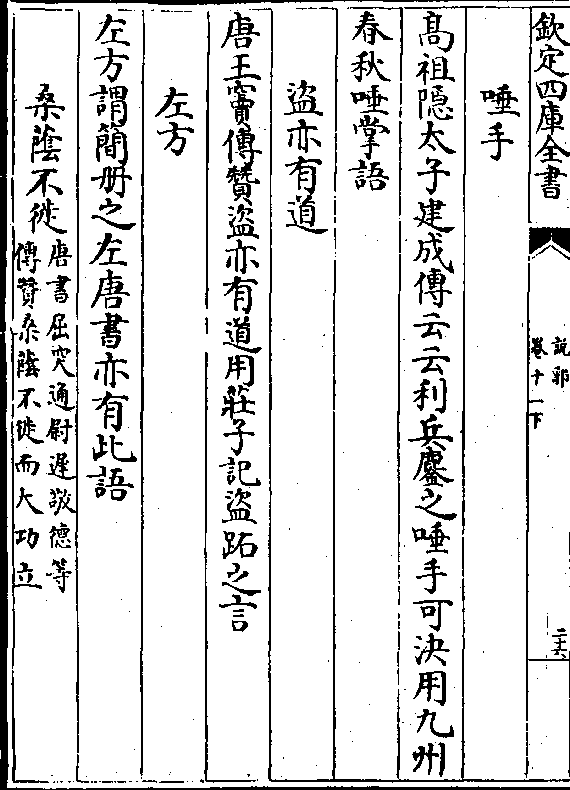 欽定四庫全書
說郛
卷十一下
二六
唾手
髙祖隠太子建成傳云云利兵鏖之唾手可決用九州
春秋唾掌語
盜亦有道
唐王竇傳贊盜亦有道用莊子記盜跖之言
左方
左方謂簡册之左唐書亦有此語
桑蔭不徙唐書屈突通尉遲敬德等
傳贊桑蔭不徙而大功立